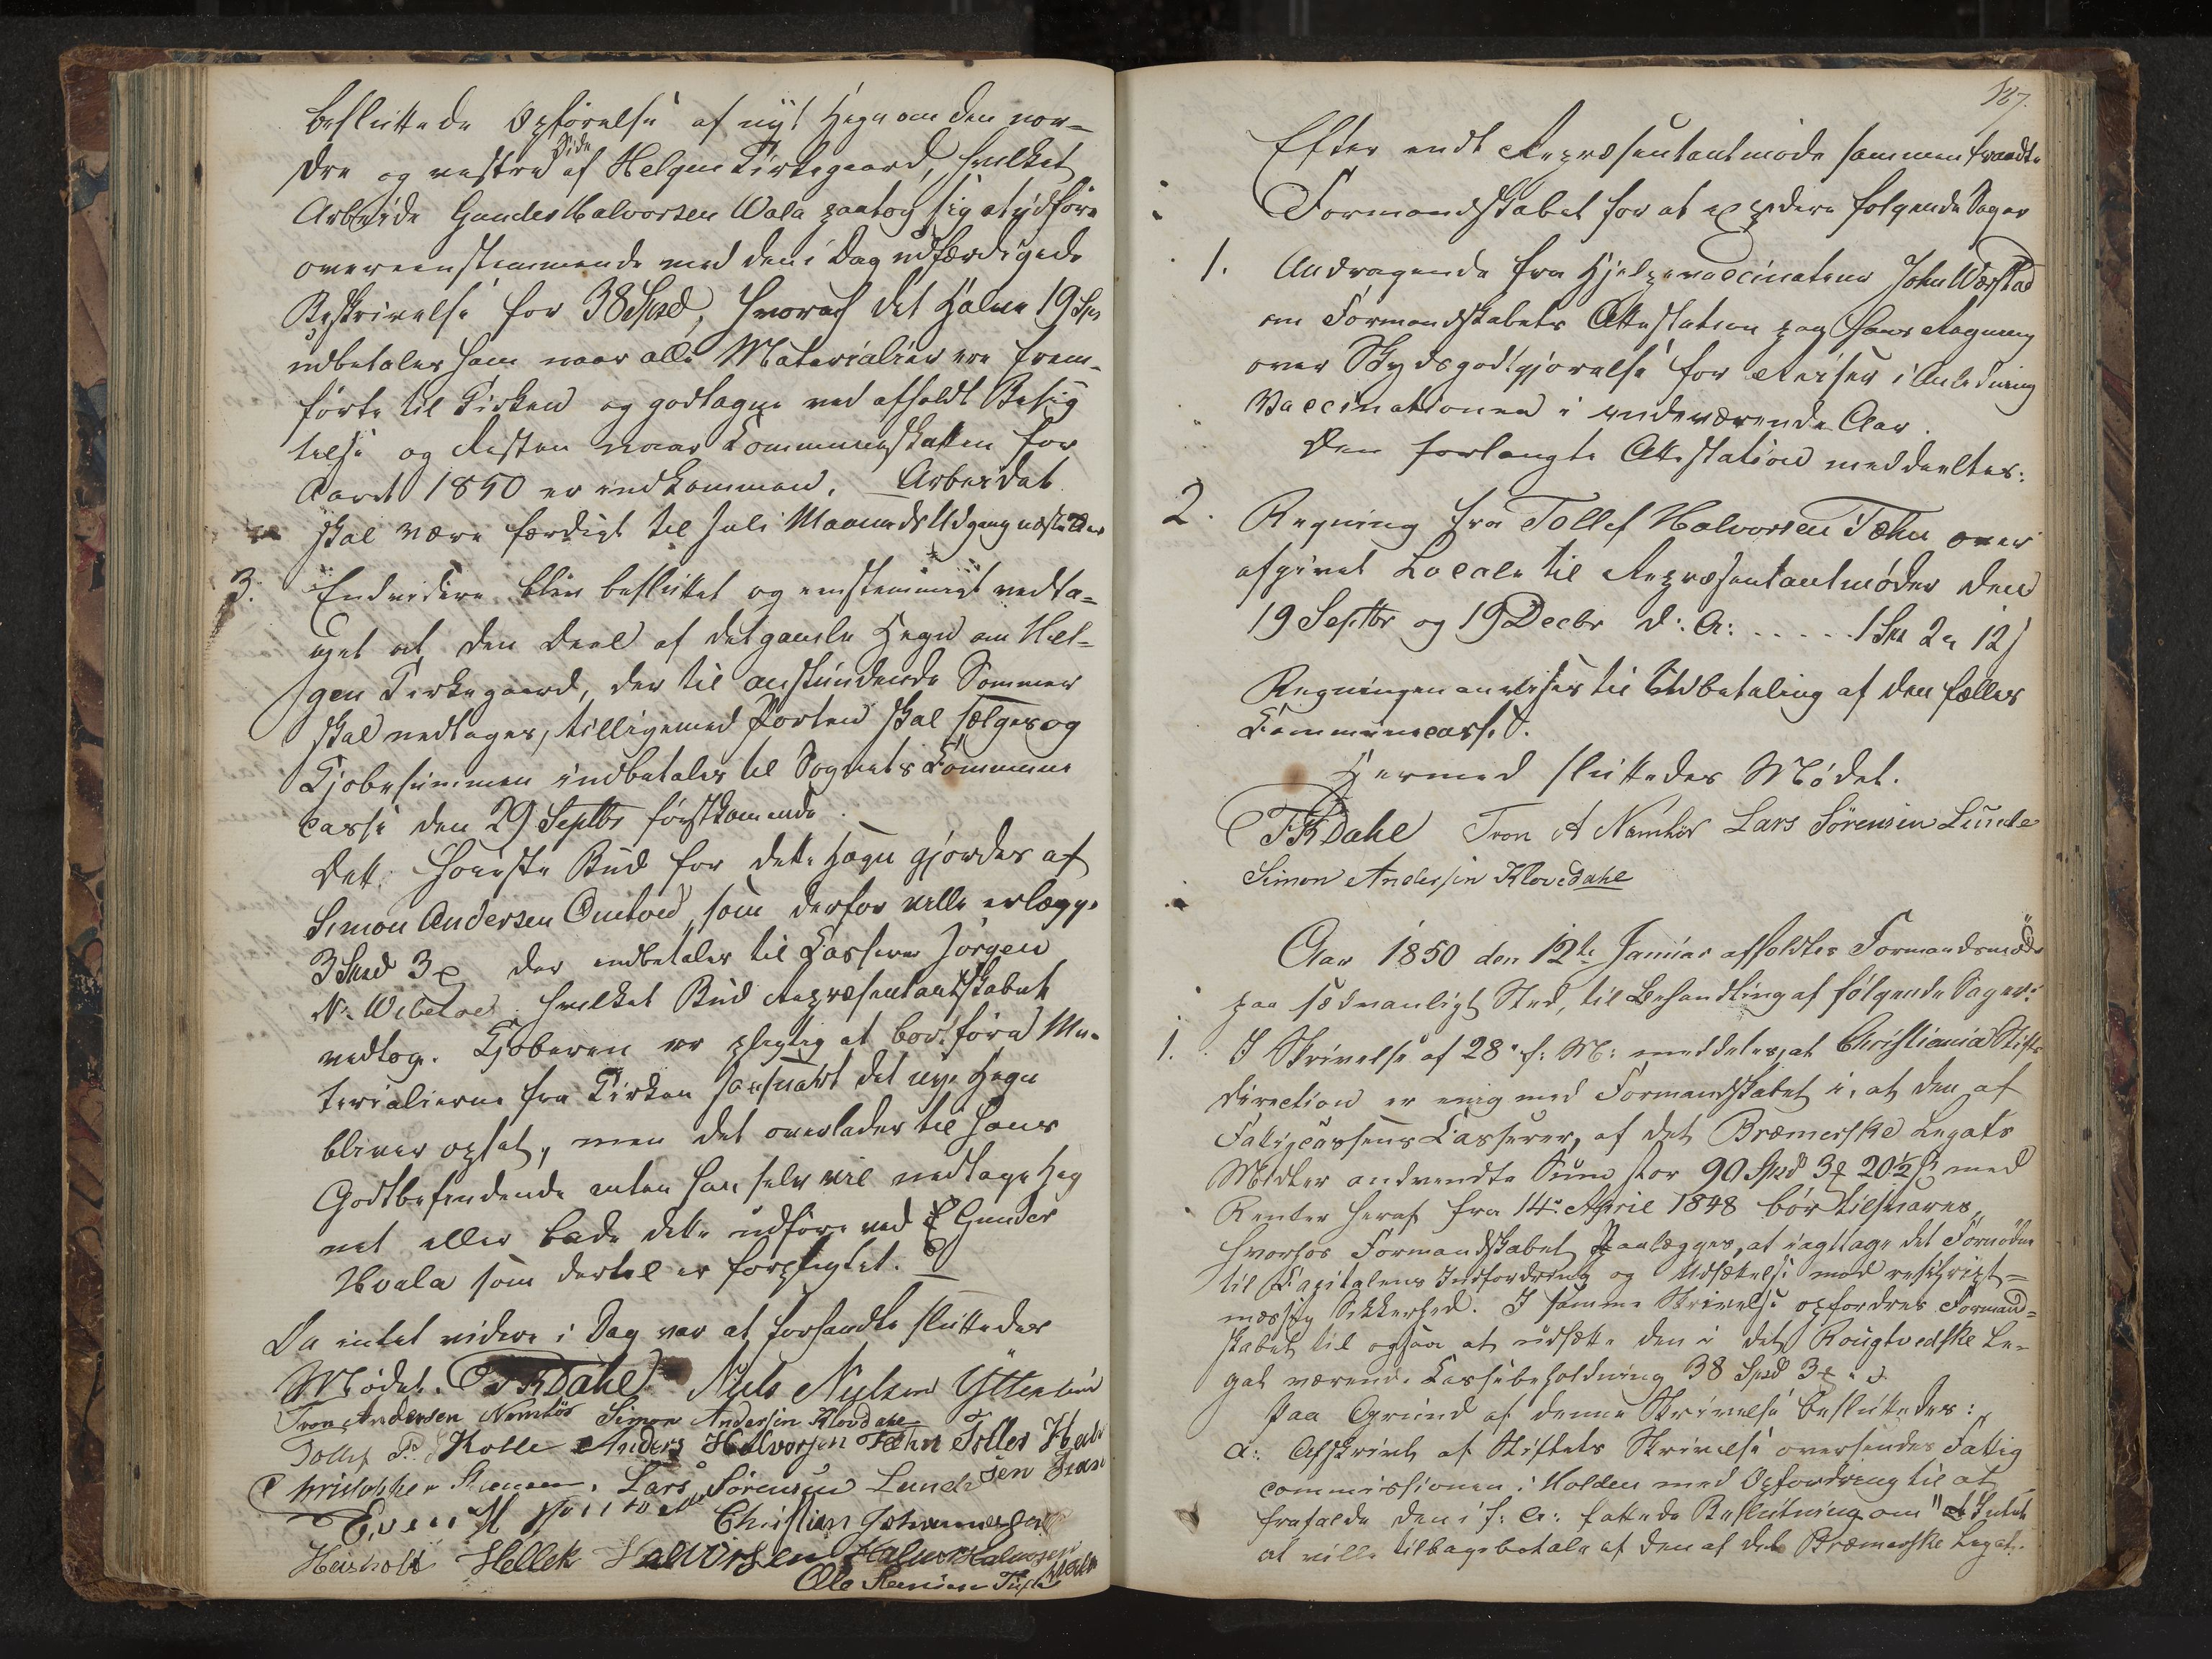 besluttede Opførelse af nyt Hegn om den nor-
dre og vestre Side af Helgen Kirkegaard, hvilket
Arbeide Gunder Halvorsen Wala paatog sig at udføre
overeenstemmende med den i Dag udfærdigede
Beskrivelse for 38 Spd, hvoraf det Halve 19 Spd
udbetales ham naar alle Materialier ere frem-
førte til Kirken og godtagne ved afholdt Besig
telse og Resten naar Communeskatten for
Aaret 1850 er indkommen. Arbeidet
skal være færdigt til Juli Maaneds Udgang
3. Endvidere blev besluttet og enstemmigt vedta-
get at den Deel af det gamle Hegn om Hel-
gen Kirkegaard, der til anstundende Sommer
skal nedtages, tilligemed Porten skal sælges og
Kjøbesummen indbetales til Sognets Commune
casse den 29 Septbr førstkommende.
Det høieste Bud for dette Hegn gjordes af
Simon Andersen Omtved, som derfor ville erlægge
3 Spd 3 der indbetales til Casserer Jørgen
N. Wibetoe hvilket Bud Repræsentantskabet
vedtog. Kjøberen er pligtig at bortføre Ma-
terialierne fra Kirken saasnart det nye Hegn
bliver opsat, men det overlades til hans
Godtbefindende enten han selv vil nedtage Heg
net eller lade dette udføre ved Gunder
Hvala som dertil er forpligtet.
Da intet videre i Dag var at forhandle sluttedes
Mødet. Dahl Niels Nielsen
Tron Andersen Namløs Simon Andersen Klovdahl
Tollef Kolle Anders Halvorsen Tæhn Tollef Halv
Christopher Lars Sørensen Lunde sen
Even Christian Johannesen
Heisholt Hellek Halvorsen Halvor Halvorsen
Ole
187.
Efter endt Repræsentantmøde sammentraadte
Formandskabet for at expedere følgende Sager
1. Andragende fra Hjelpevaccinateur John Wærstad
om Formandskabets Attestation paa hans Regning
over Skydsgodtgjørelse for Reiser i Anledning
Vaccinationen i indeværende Aar.
Den forlangte Attestation meddeeltes.
2. Regning fra Tollef Halvorsen Tæhn over
afgivet Locale til Repræsentantmøder den
19 Septbr og 19 Decbr d: A: . . . . . 1 Spd 2 12
Regningen anvises til Udbetaling af den fælles
Communecasse.
Hermed sluttedes Mødet.
Dahl Tron A Namløs Lars Sørensen Lunde
Simon Andersen Klovedahl
Aar 1850 den 12te Januar afholdtes Formandsmøde
paa sædvanligt Sted, til Behandling af følgende Sager:
1. I Skrivelse af 28 f: M: meddeles, at Christiania Stifts
direction er enig med Formandskabet i, at den af
Fattigcassens Casserer, af det Bræmerske Legats
Midler anvendte Sum stor 90 Spd 3 20½ ß med
Renter heraf fra 14 April 1848 bør tilsvares,
hvorhos Formandskabet paalægges, at iagttage det Fornødne
til Capitalens Inddrivelse og Udsættelse mod rescript-
mæssig Sikkerhed. I samme Skrivelse opfordres Formand-
skabet til ogsaa at udsætte den i det Rougtvedske Le-
gat værende Cassebeholdning 38 Spd 3
Paa Grund af denne Skrivelse besluttedes:
a: Afskrift af Stiftets Skrivelse oversendes Fattig
commissionen i Holden med Opfordring til at
frafalde den i f: A: fattede Beslutning om "Intet
at ville tilbagebetale af den af det Bræmerske Legat.